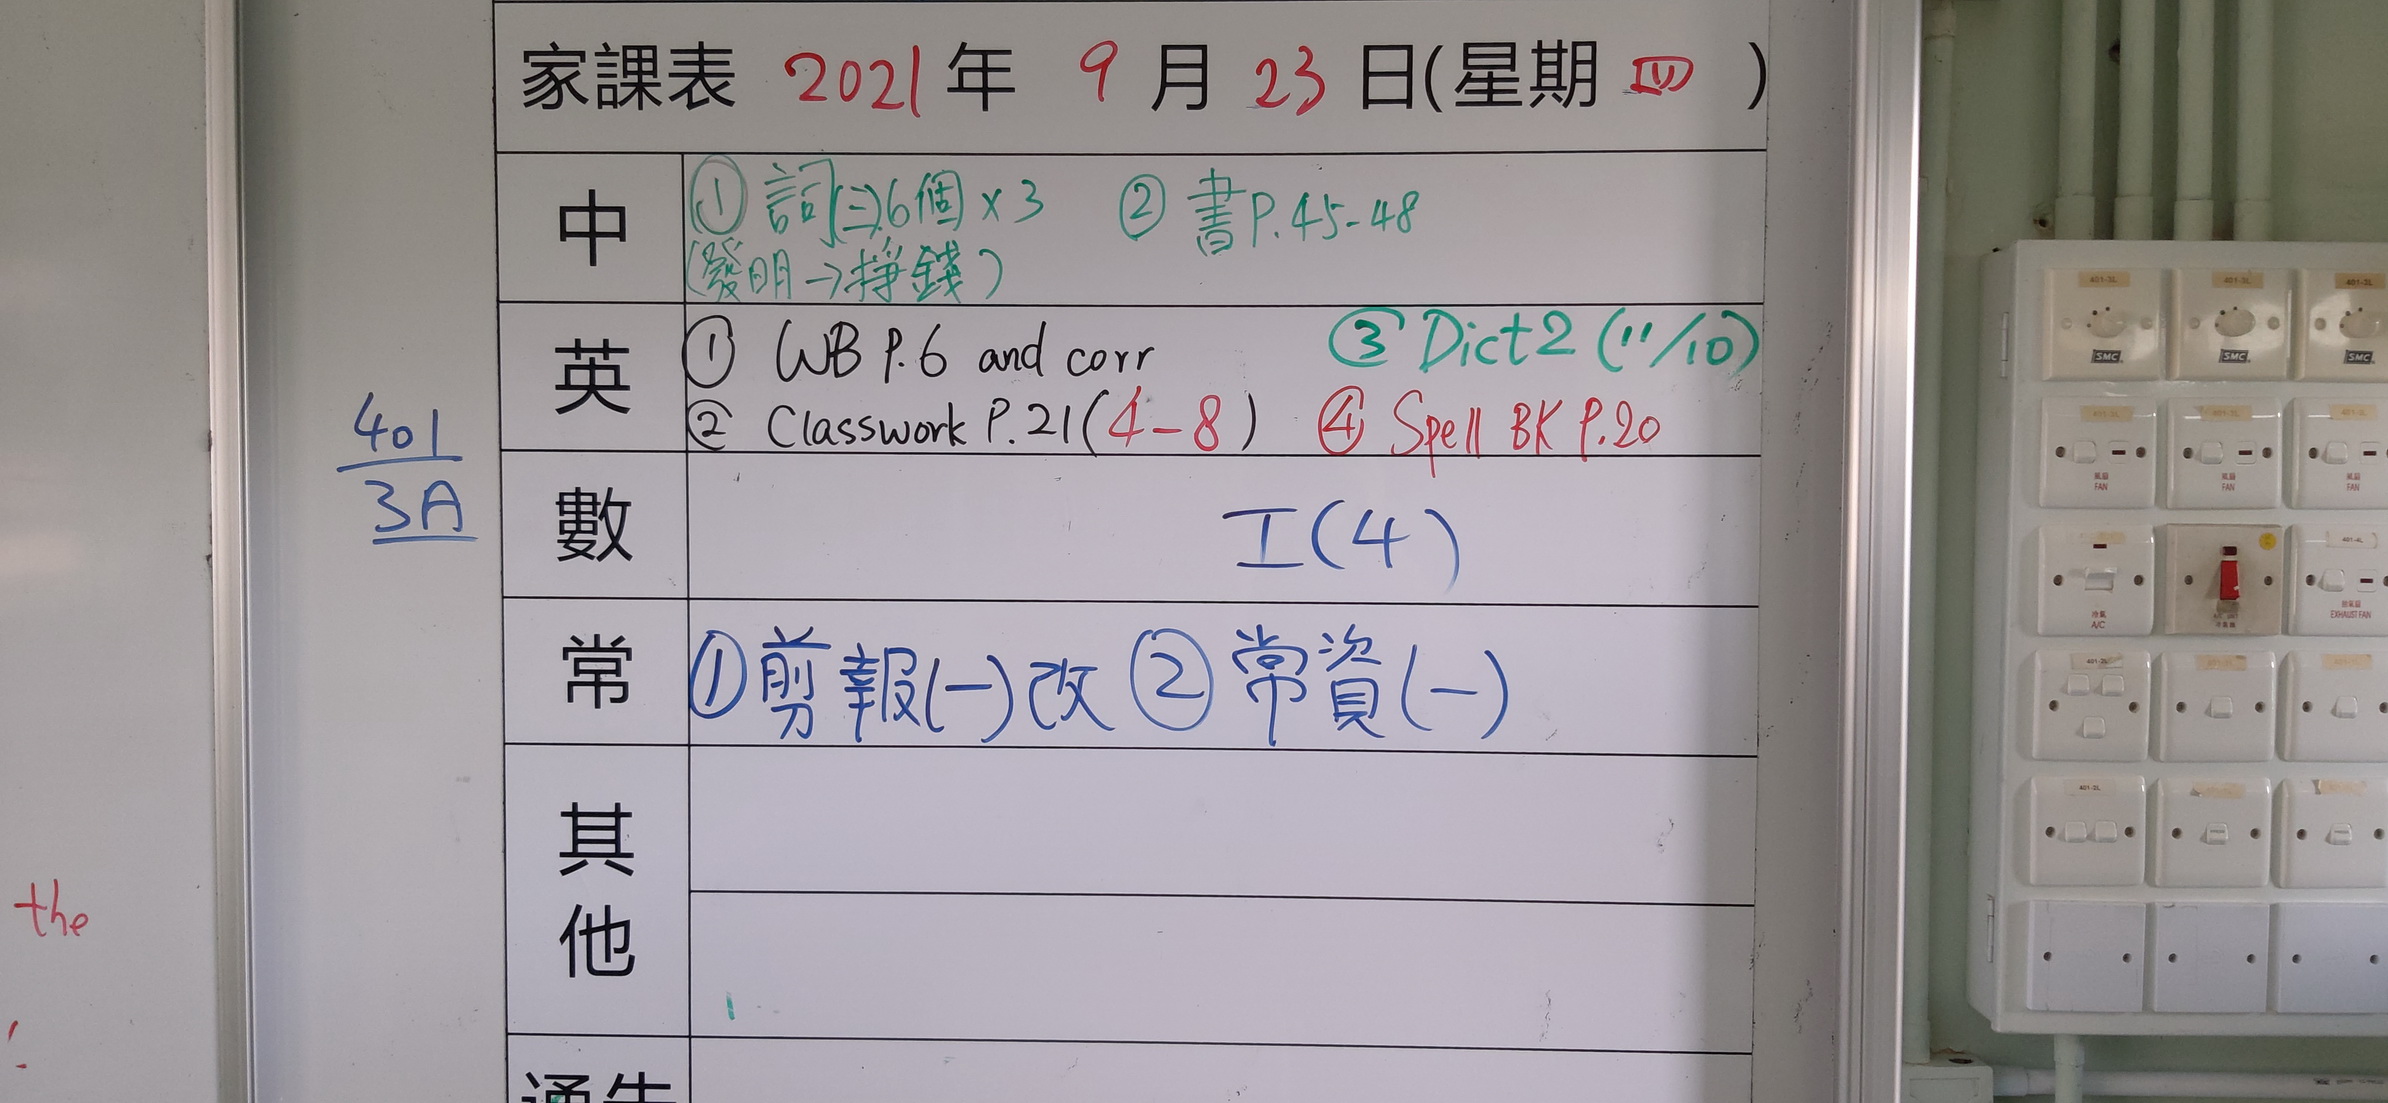 家課表 2021年 9月 23日(星期四)
中
① 詞(二)6個×3 ② 書P.45-48
(發明→掙錢)
英
① WB P.6 and corr ③ Dict 2 (11/10)
② Classwork P.21(4-8) ④ Spell BK P.20
401
3A
數
工(4)
常
①剪報(一)改 ②常資(一)
其他
通告
the
401-3L
401-3L
401-3L
SMC
SMC
SMC
401-3L
401-3L
401-3L
風扇
FAN
風扇
FAN
風扇
FAN
401-4L
冷氣
A/C
EXHAUST FAN
401-3L
401-3L